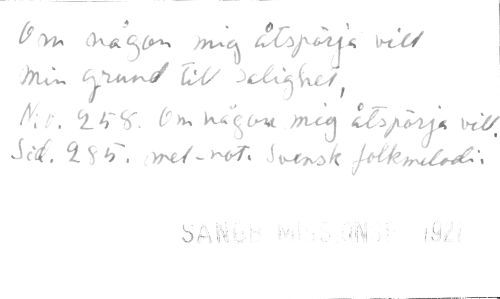 Om någon mig åtspörja vill
min grund till salighet,
N:o. 258. Om någon mig åtspörja vill.
Sid. 285. mel-not. Svensk folkmelodi.
1921